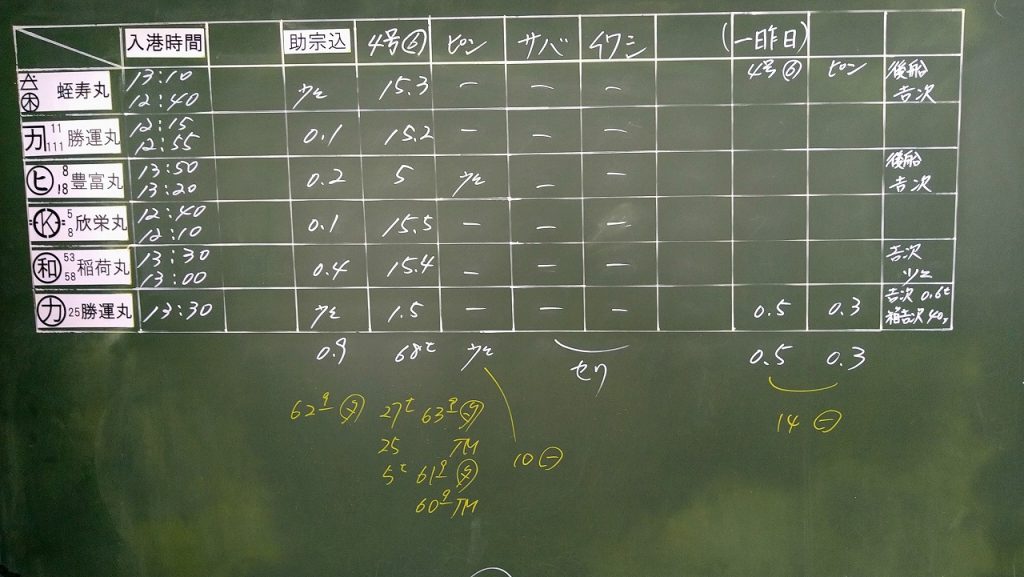 入港時間 助宗込 4号 ピン サバ イワシ (一昨日)
4号⑥ ピン
蛭寿丸 13:10 12:40 15.3 - - - 後船 吉次
11 111 勝運丸 12:15 12:55 0.1 15.2 - - -
ヒ 8 18 豊富丸 13:50 13:20 0.2 5 - - 後船 吉次
K 5 8 欣栄丸 12:40 12:10 0.1 15.5 - - -
和 53 58 稲荷丸 13:30 13:00 0.4 15.4 - - - 吉次
カ 25 勝運丸 13:30 1.5 - - - 0.5 0.3 吉次 0.6t
0.9 68t セリ 0.5 0.3
62 27t 63 14
25 TM 10
5t 61
60 TM